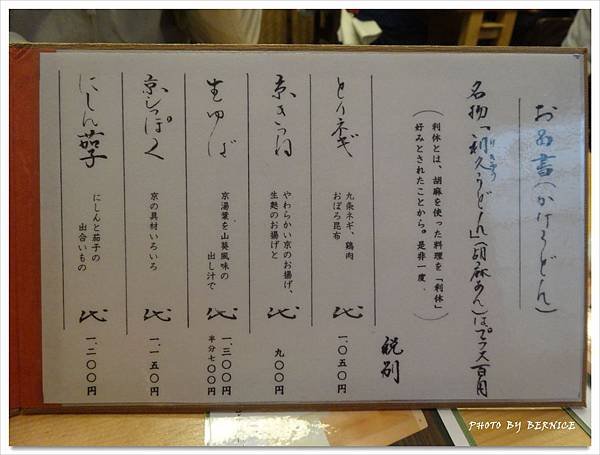 お品書(かけうどん)
名物「利久うどん」(胡麻あん)はプラス百円
りきゅう
(利休とは、胡麻を使った料理を「利休」
好みとされたことから。是非一度。)
税別
とりネギ
九条ネギ、鶏肉
おぼろ昆布
代
一、〇五〇円
京きつね
やわらかい京のお揚げ、
生麩のお揚げと
代
九〇〇円
生ゆば
京湯葉を山葵風味の
出し汁で
代
一、三〇〇円
半分七〇〇円
京しっぽく
京の具材いろいろ
代
一、一五〇円
にしん茄子
にしんと茄子の
出合いもの
代
一、二〇〇円
PHOTO BY BERNICE